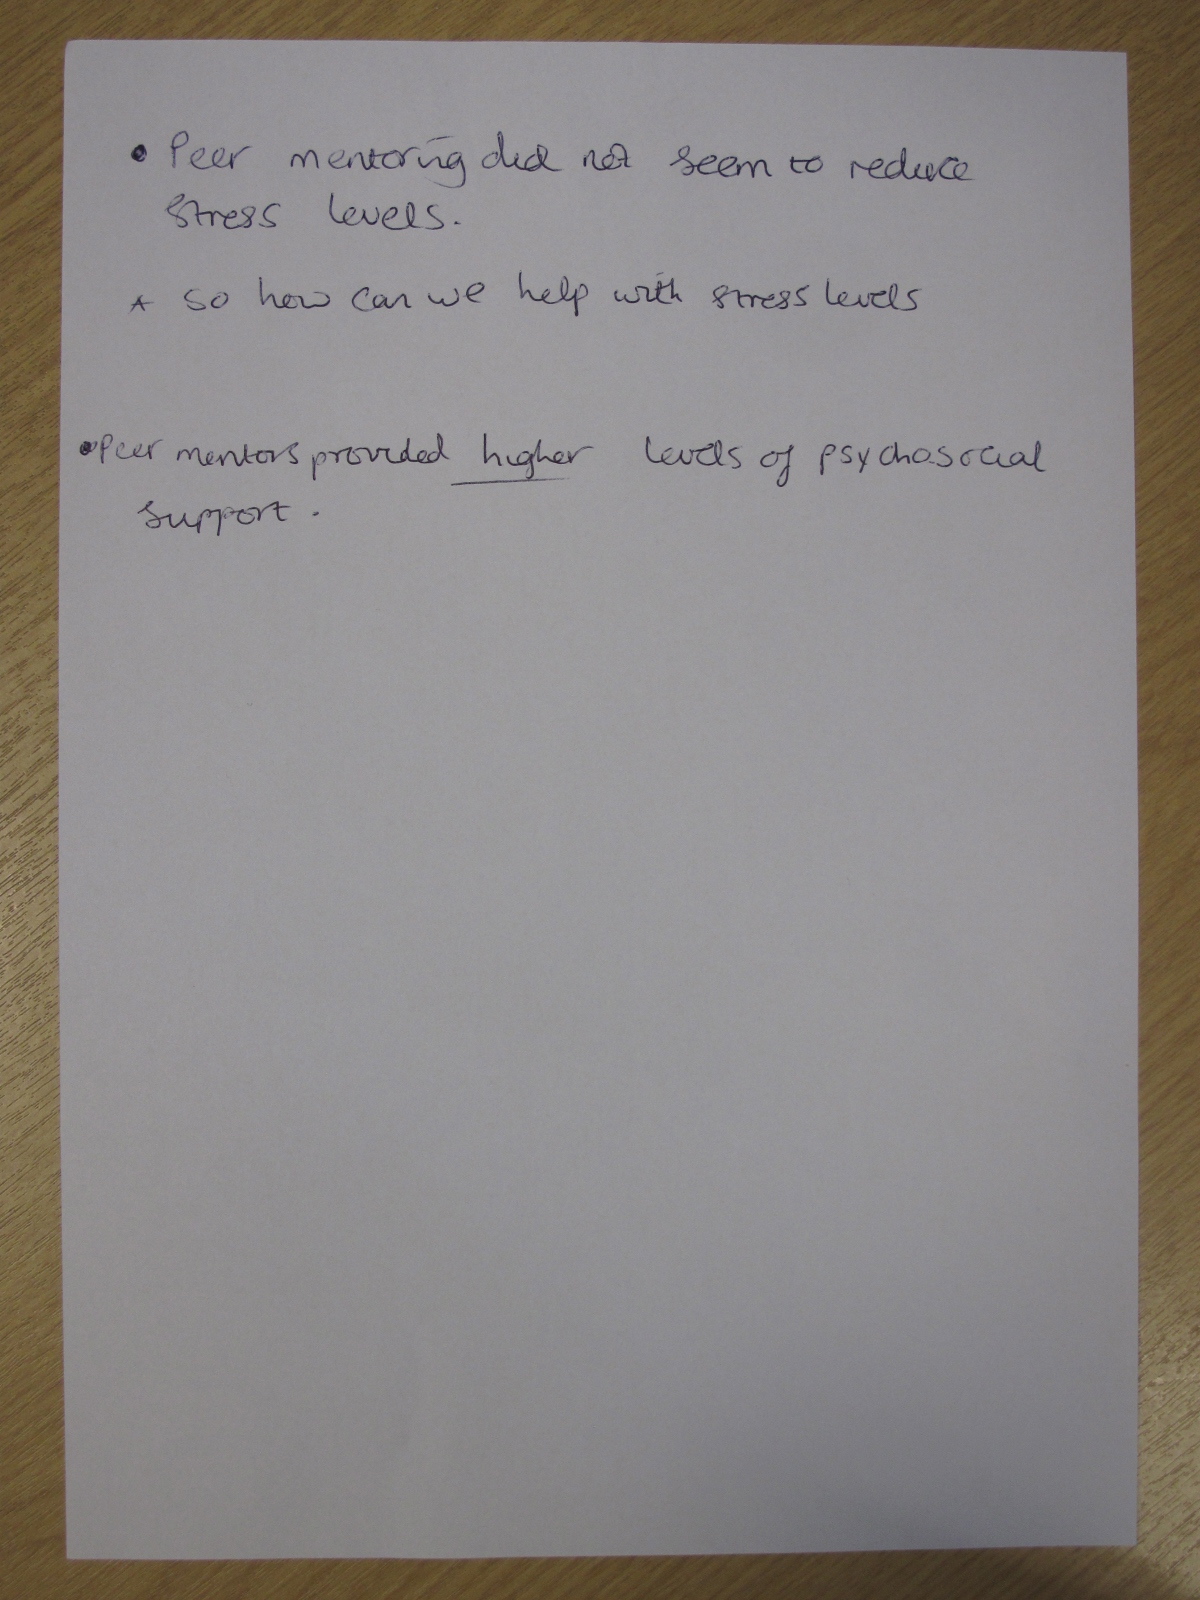 • Peer mentoring did not seem to reduce
stress levels.
* so how can we help with stress levels
• Peer mentors provided higher levels of psychosocial
support.